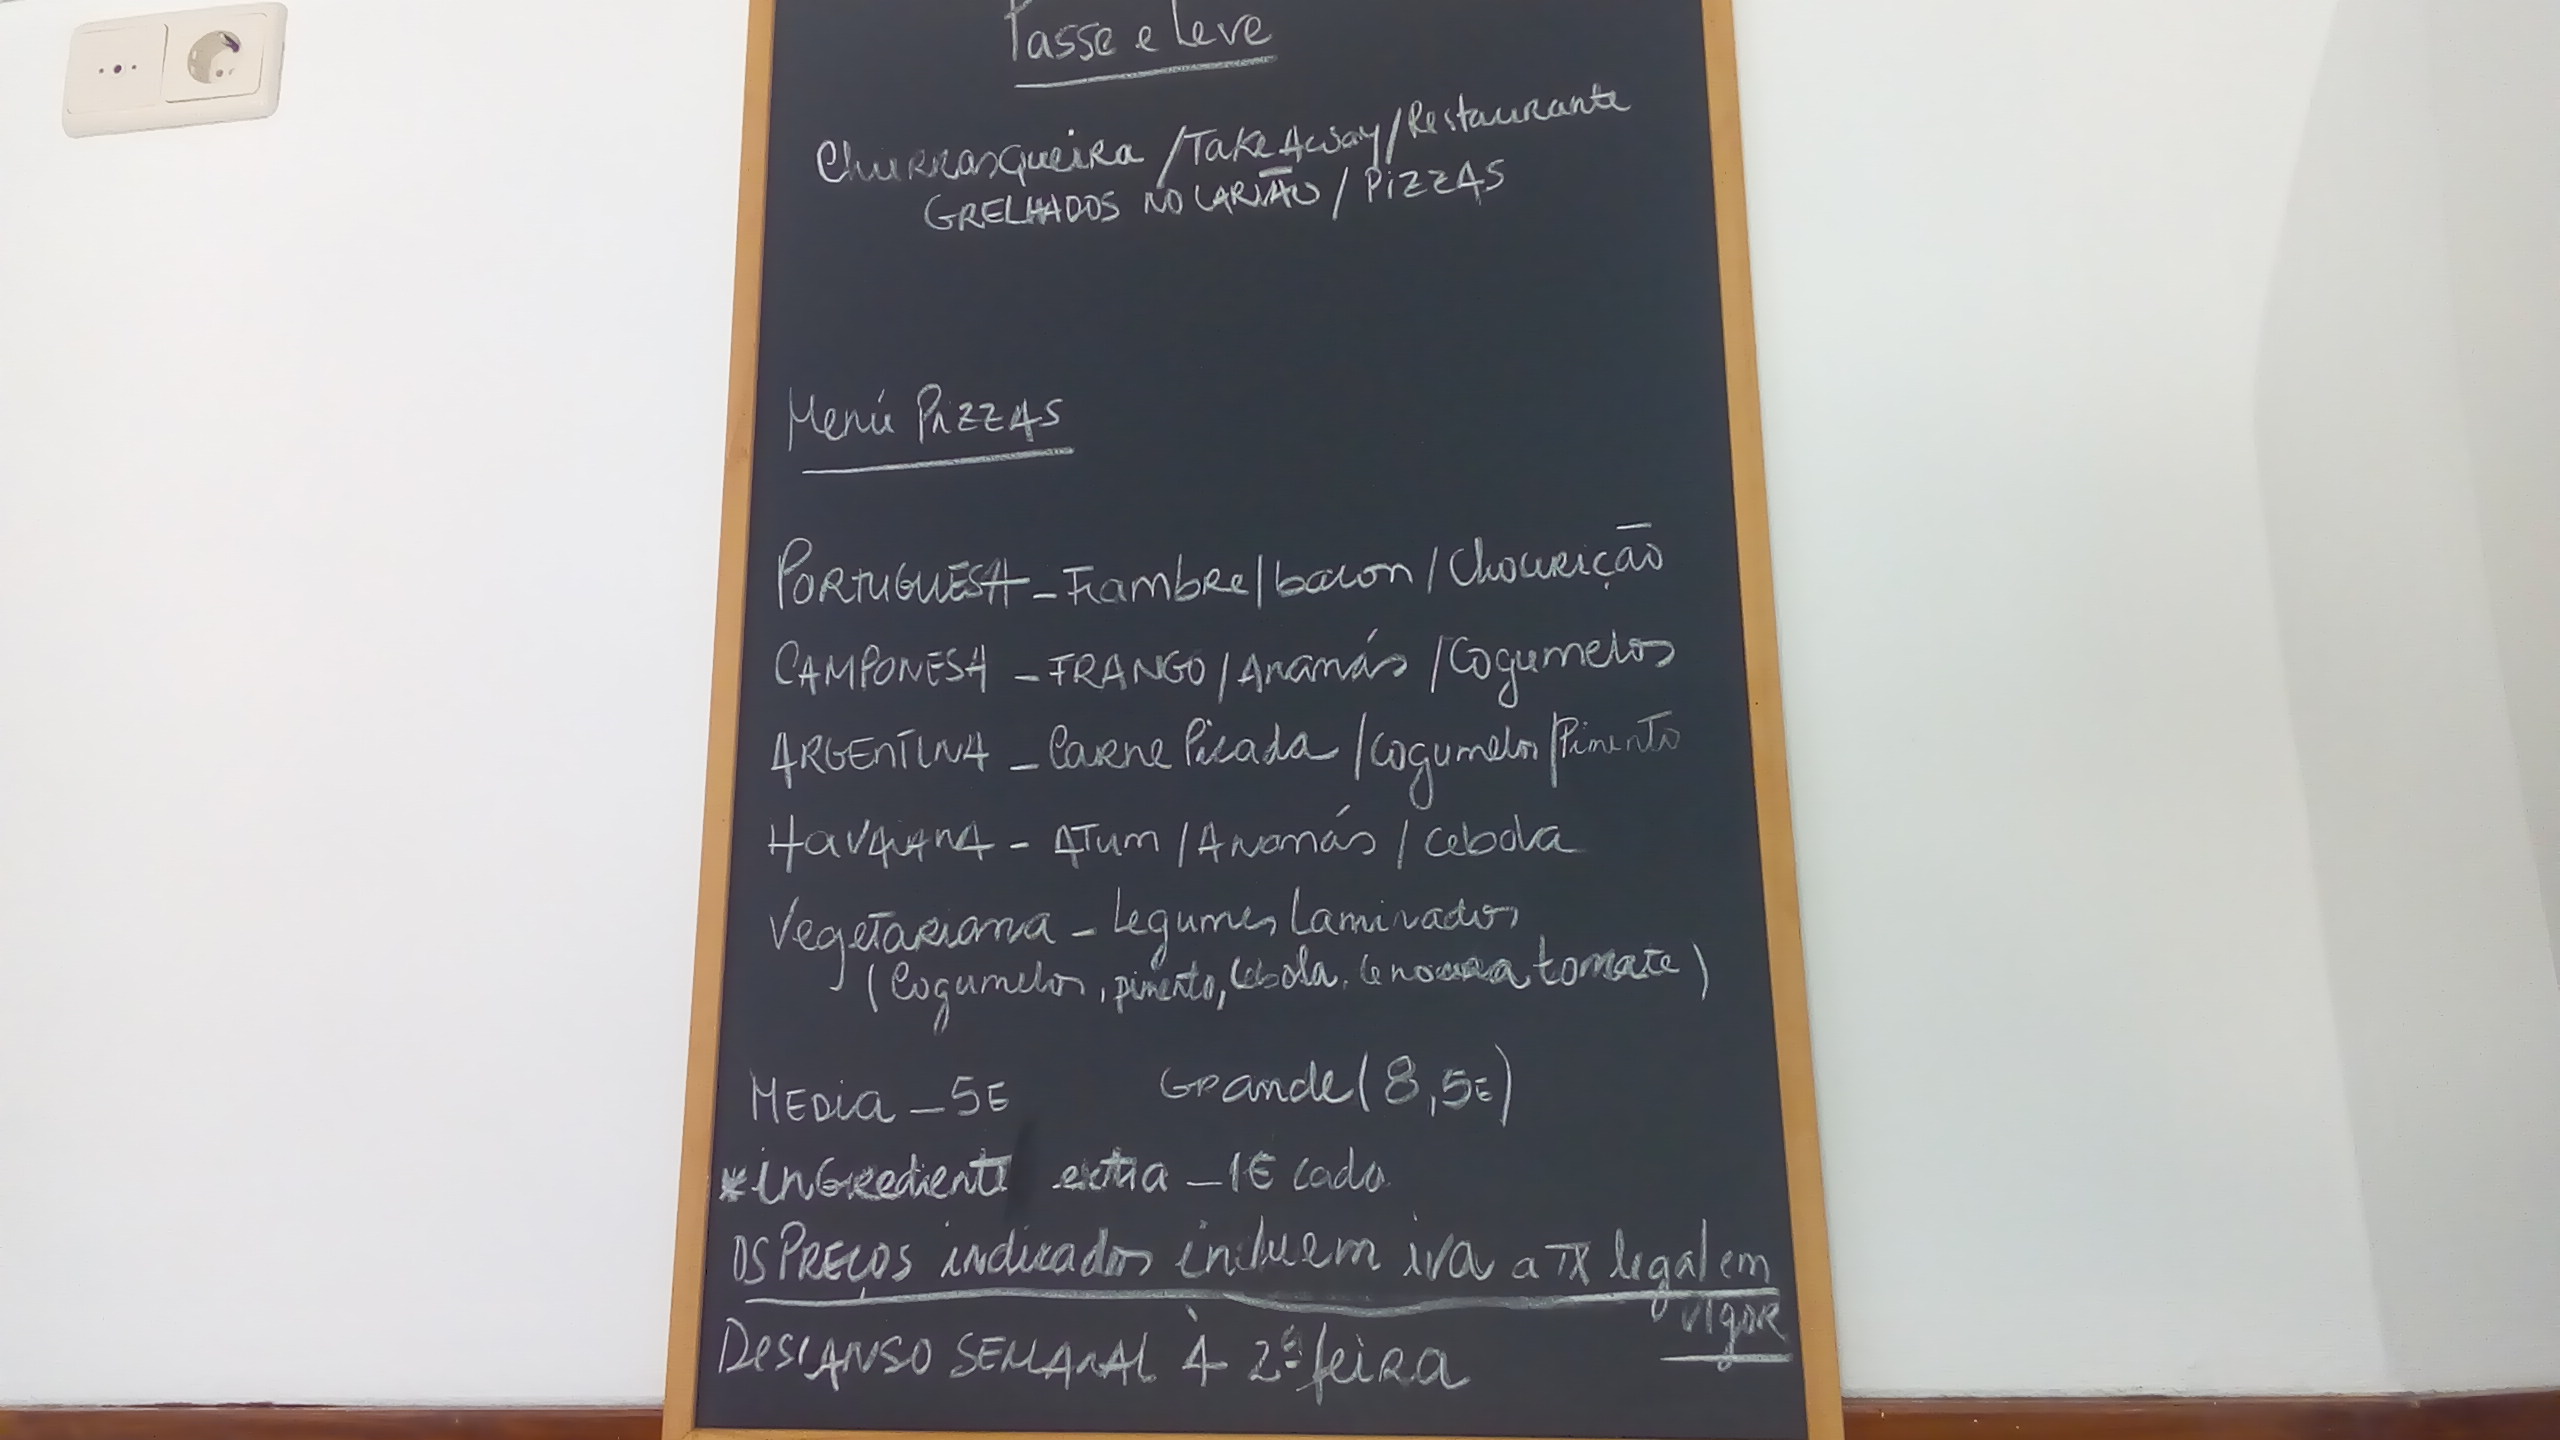 Passe e Leve
Churrasqueira / Take Away / Restaurante
GRELHADOS NO CARVÃO / PIZZAS
Menú PIZZAS
PORTUGUESA - Fiambre / bacon / Chourição
CAMPONESA - FRANGO / Ananás / Cogumelos
ARGENTINA - Carne Picada / Cogumelos / Pimento
HAVAIANA - ATUM / Ananás / Cebola
Vegetariana - Legumes Laminados
(Cogumelos, pimento, Cebola, Cenoura tomate)
MEDIA - 5€ Grande (8,5€)
*ingrediente extra - 1€ cada
OS PREÇOS indicados incluem iva a TX legal em
vigor
DESCANSO SEMANAL À 2ª feira